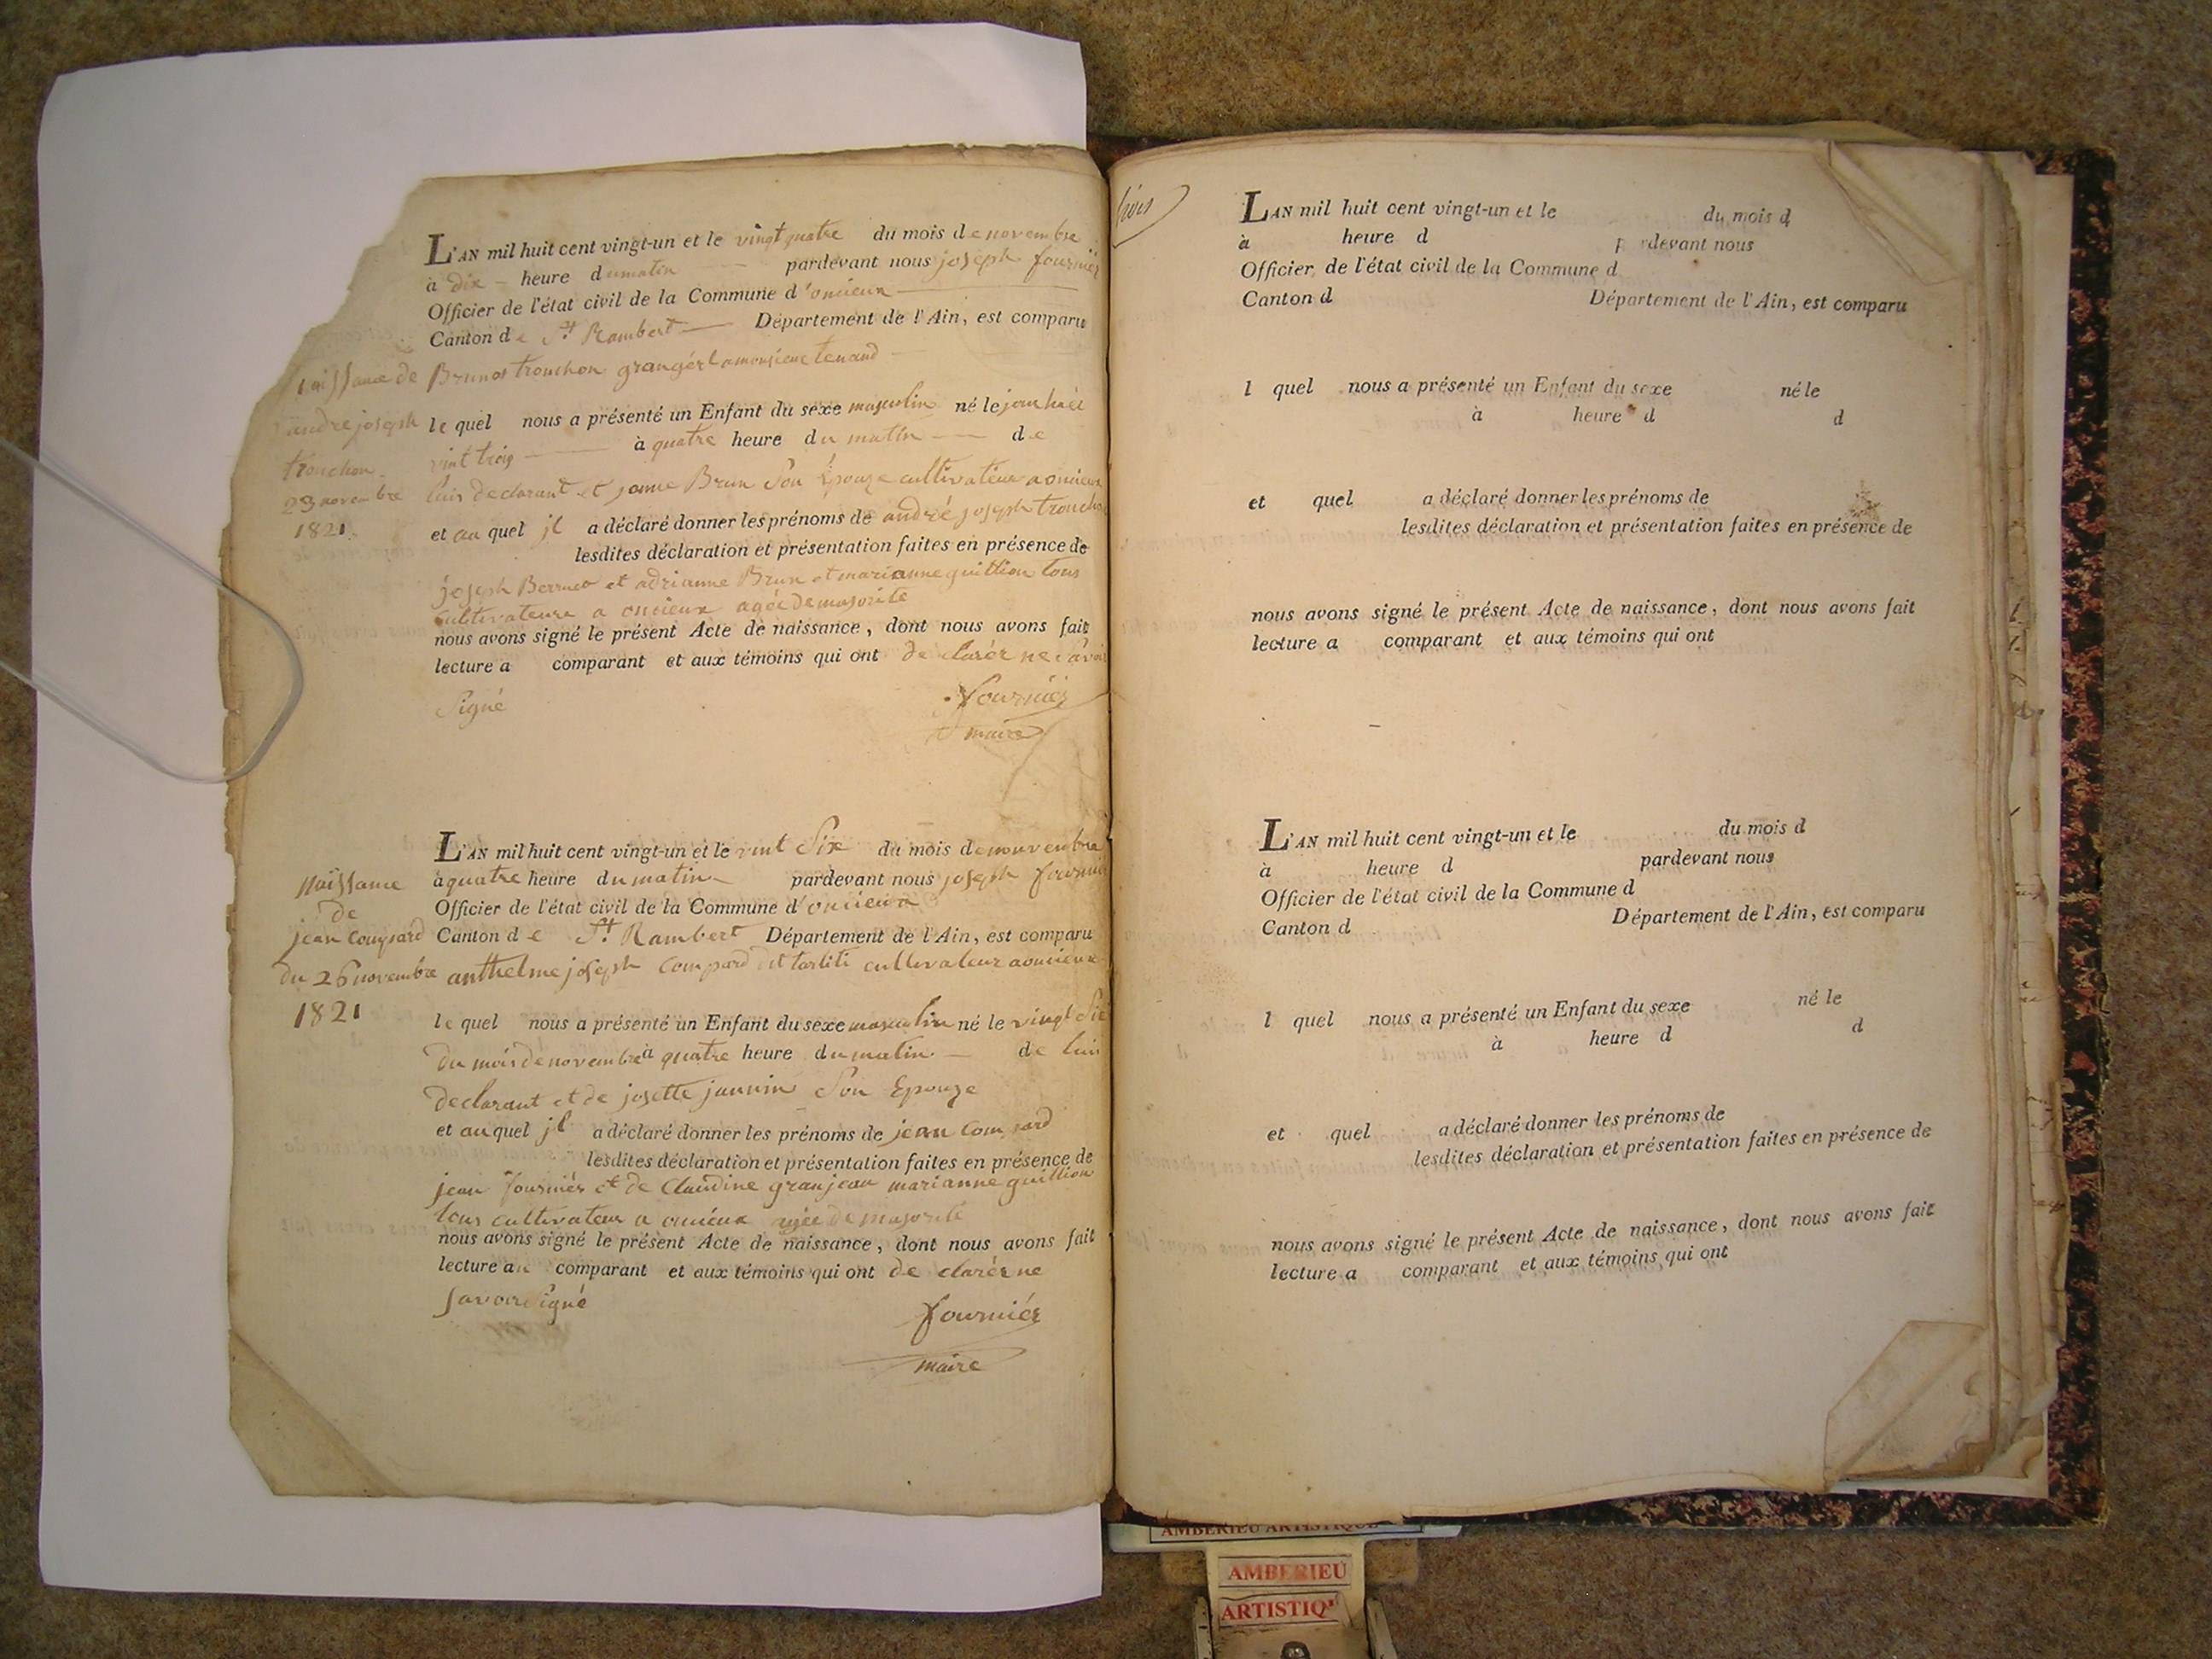 L'AN mil huit cent vingt-un et le vingt quatre du mois de novembre
à dix heure du matin pardevant nous joseph fournier
Officier de l'état civil de la Commune d'oncieux
Canton de St Rambert Département de l'Ain, est comparu
Brunos tronchon granger a monsieur tenand
le quel nous a présenté un Enfant du sexe masculin né le
vint trois à quatre heure du matin de
luis declarant et Brun Son Epouze cultivateur a oncieux
et au quel jl a déclaré donner les prénoms de andré joseph tronchon
lesdites déclaration et présentation faites en présence de
joseph et adrianne Brun et marianne guillion tous
cultivateure a oncieux agée de majorite
nous avons signé le présent Acte de naissance, dont nous avons fait
lecture a comparant et aux témoins qui ont de clarér ne savoir
Signé
fourniér
maire
naissance de
andre joseph
tronchon
23 novembre
1821
L'AN mil huit cent vingt-un et le vint Six du mois de nouvembre
à quatre heure du matin pardevant nous joseph fournier
Officier de l'état civil de la Commune d'oncieux
Canton de St Rambert Département de l'Ain, est comparu
anthelme joseph compard dit cultivateur a oncieux
le quel nous a présenté un Enfant du sexe masculin né le vingt Six
du mois de novembre à quatre heure du matin de luis
declarant et de josette jannin Son Epouze
et au quel jl a déclaré donner les prénoms de jean compard
lesdites déclaration et présentation faites en présence de
jean fourniér et de Claudine granjean marianne guillion
tous cultivateur a oncieux agée de majorite
nous avons signé le présent Acte de naissance, dont nous avons fait
lecture au comparant et aux témoins qui ont de clarér ne
savoir Signé
fourniér
maire
Naissance
de
jean compard
du 26 novembre
1821
L'AN mil huit cent vingt-un et le du mois d
à heure d pardevant nous
Officier de l'état civil de la Commune d
Canton d Département de l'Ain, est comparu
l quel nous a présenté un Enfant du sexe né le
à heure d d
et quel a déclaré donner les prénoms de
lesdites déclaration et présentation faites en présence de
nous avons signé le présent Acte de naissance, dont nous avons fait
lecture a comparant et aux témoins qui ont
L'AN mil huit cent vingt-un et le du mois d
à heure d pardevant nous
Officier de l'état civil de la Commune d
Canton d Département de l'Ain, est comparu
l quel nous a présenté un Enfant du sexe né le
à heure d d
et quel a déclaré donner les prénoms de
lesdites déclaration et présentation faites en présence de
nous avons signé le présent Acte de naissance, dont nous avons fait
lecture a comparant et aux témoins qui ont
AMBERIEU ARTISTIQUE
AMBERIEU
ARTISTIQ